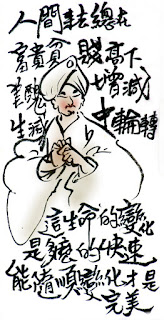 人間事總在
富貴貧賤高下、
醜增減
生滅中輪轉
這生命的變化
是多麼的快速
能隨順變化才是
完美